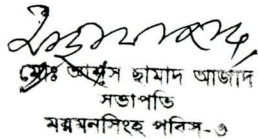 মোঃ আব্দুস ছামাদ আজাদ
সভাপতি
ময়মনসিংহ পবিস-৩